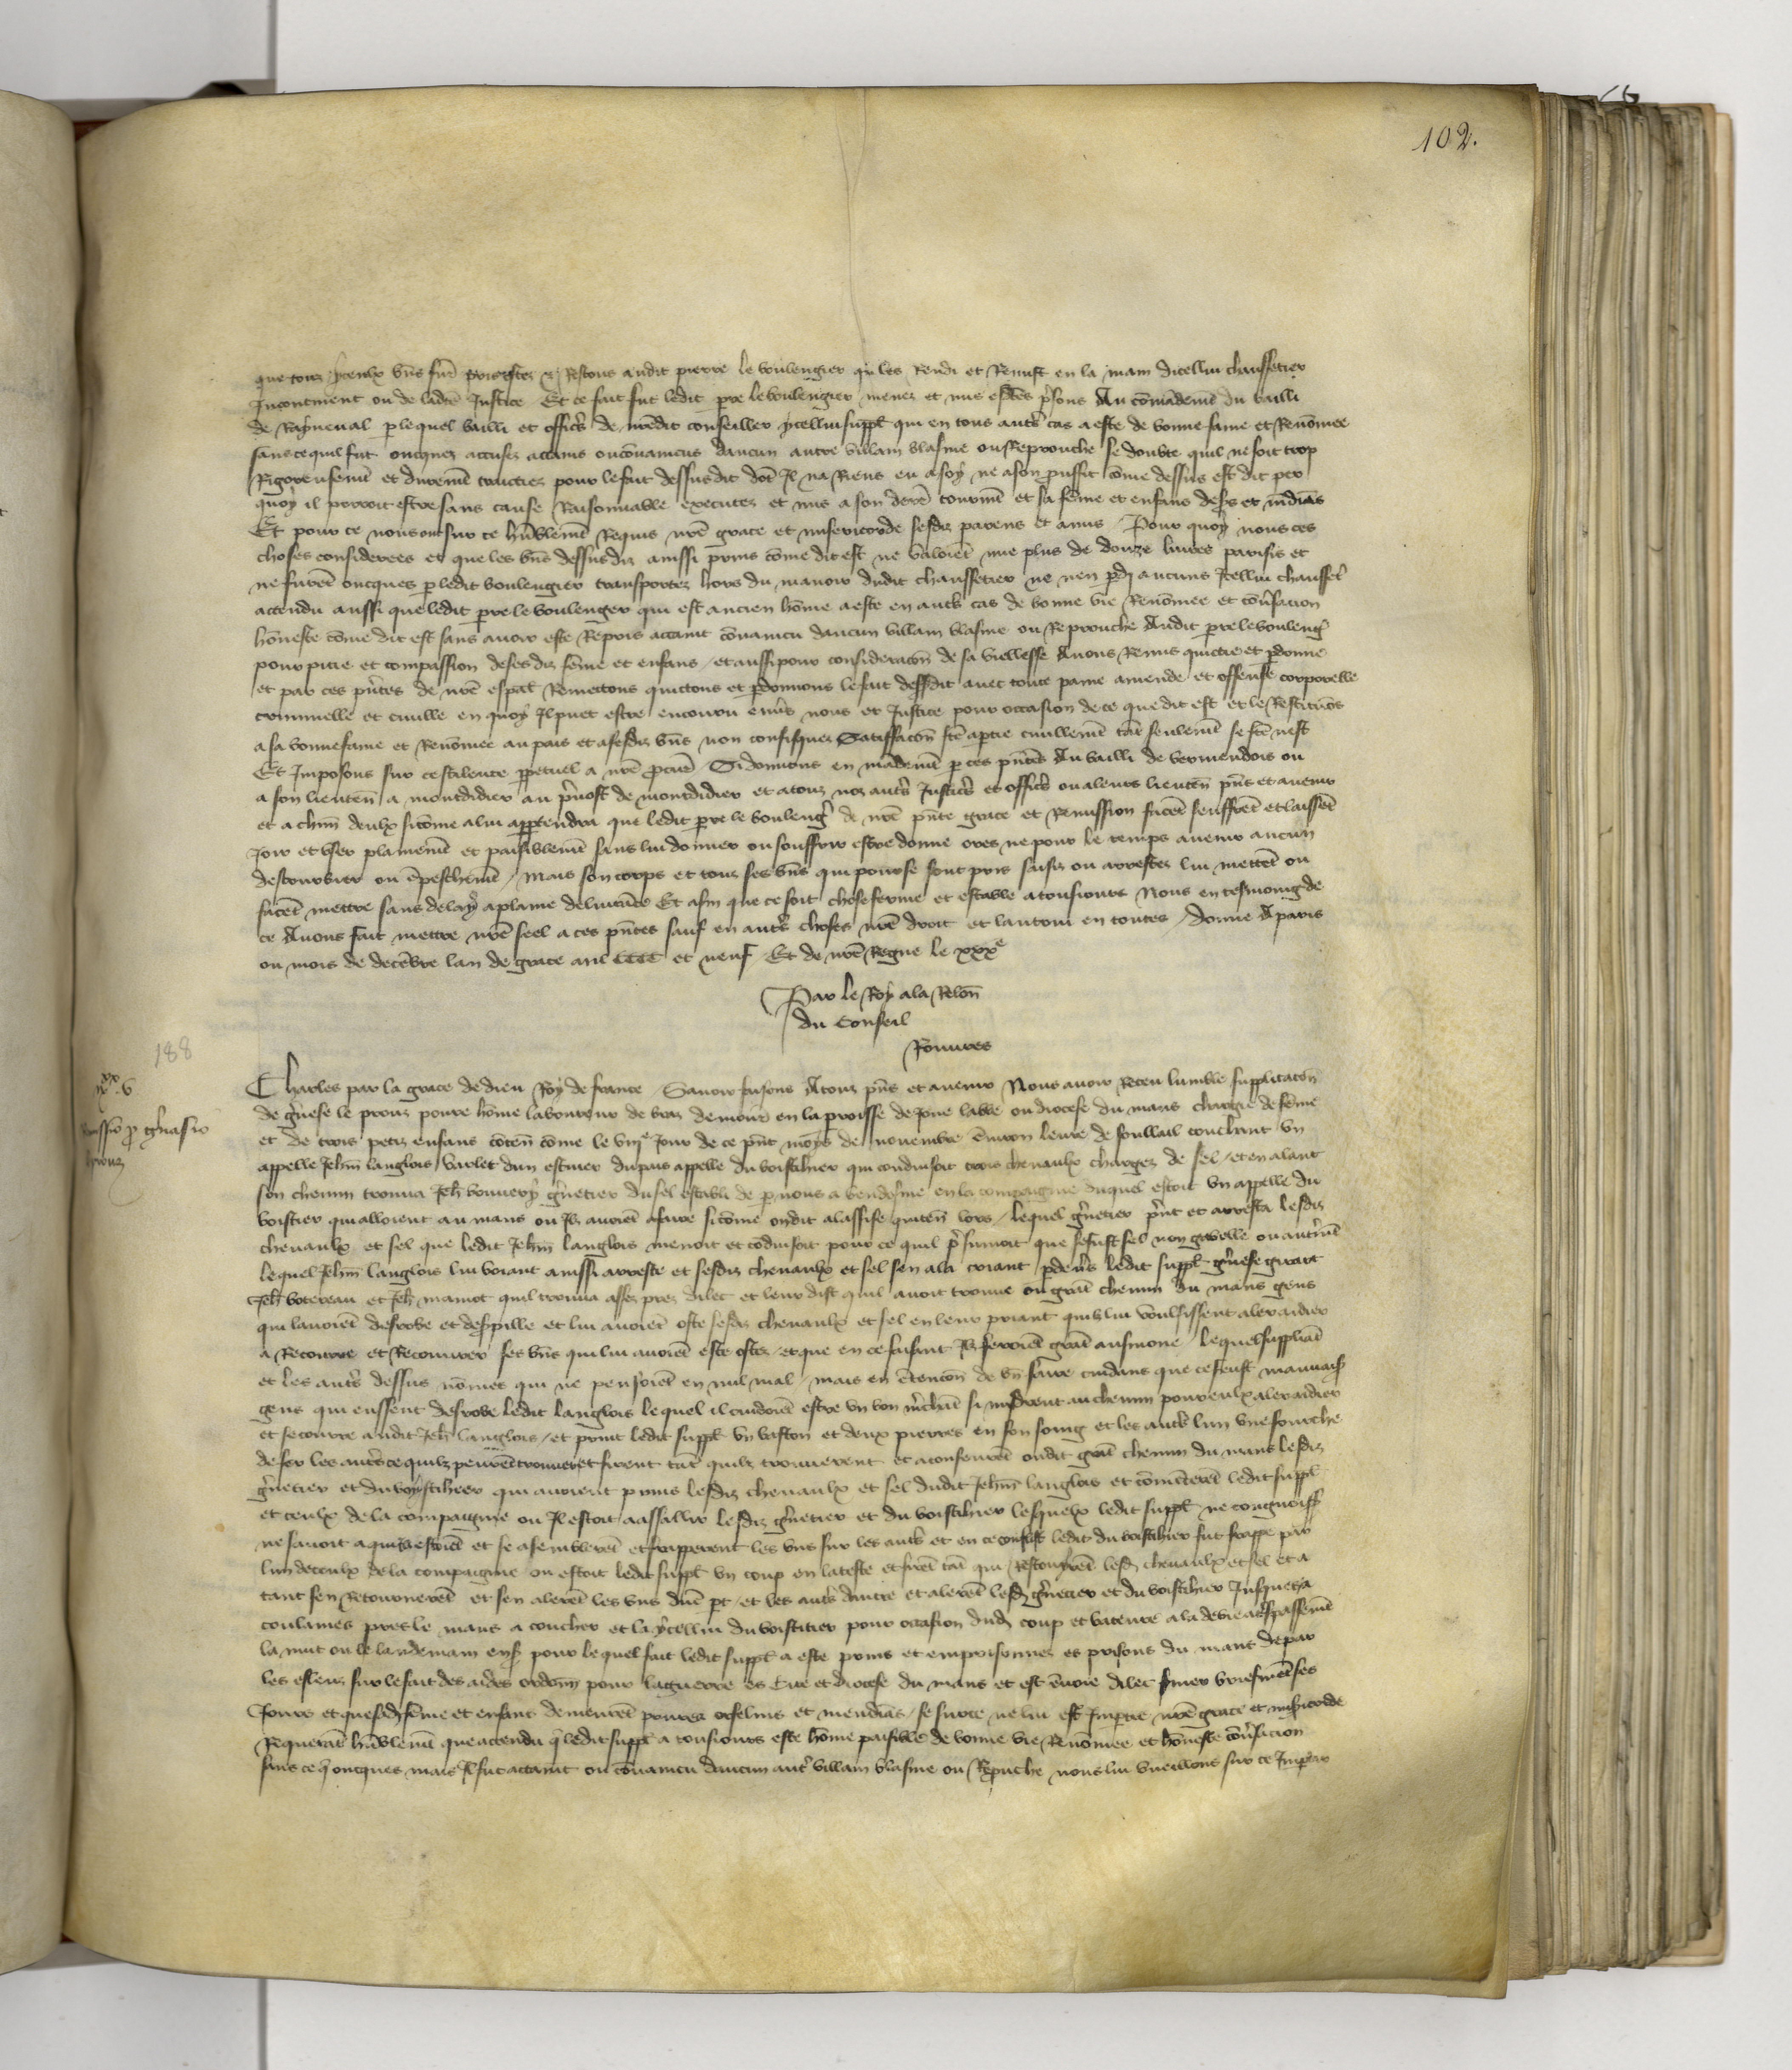 102.
que touz yceulx bn̄s fur̄ prins ostez & Restons audit pierre le boulengier qui les Rendi et Remist en la main dicellui chaussetier
Incontinent ou de ladc̄e Justice Et ce fait fut ledit prē le boulengier menez et mis esdc̄es p̄sons Au com̄ademēt du bailli
de Rayneval p lequel bailli et officrs de nrēdit conseiller ycellui suppl̄ qui en tous autrs cas a este de bonne fame et Renōmee
sans ce quil fut oncques accusez attains ou cōvaincus daucun autre villain blasme ou Reprouche se doubte quil ne soit trop
Rigoreusemēt et duremēt traictiez pour le fait dessusdit dōt Il na Riens eu a soy ne a son prouffit cōme dessus est dit par
quoy il pourroit estre sans cause Raisonnable executez et mis a son derē tourmēt et sa fēme et enfans desers et mēdians
Et pour ce nous ont sur ce hūblemēt Requis nrē grace et misericorde sesdiz parens et amis Pour quoy nous ces
choses considerees et que les bn̄s dessusdiz ainssi prins cōme dit est ne valoiēt mie plus de douze livres parisis et
ne furēt oncques p ledit boulengier transportez hors du manoir dudit chaussetier ne nen pdi aucuns Icellui chaussetr
actendu aussi que ledit prē le boulenger qui est ancien hōme a este en autrs cas de bonne vie Renōmee et cōvsacion
hōneste cōme dit est sans avoir este Repris actaint cōvaincu daucun villain blasme ou Reprouche Audit prē le bouleng
pour pitie et compassion de sesdiz fēme et enfans et aussi pour consideracōn de sa viellesse Avons Remis quictie et pdonne
et par ces pn̄tes de nrē espal̄ Remettons quictons et pdonnons le fait dessdit avec toute paine amende et offense corporelle
criminelle et civille en quoy Il puet estre encouru enūs nous et Justice pour occasion de ce que dit est et le Restituōs
a sa bonne fame et Renōmee au pais et a sesdiz bn̄s non confisquez Satisfaccōn fcē a ptie civillemēt tāt seulemēt se fcē nest
Et Imposons sur ce silence ppetuel a nrē pcurē Si donnons en mādemēt p ces pn̄tes Au bailli de vermendois ou
a son lieuten̄ a montdidier au pvost de montdidier et a touz noz autrs Justicrs et officrs ou a leurs lieuten̄ pn̄s et avenir
et a chm̄ deulx sicōme a lui apptendra que ledit prē le bouleng de nrē pn̄te grace et Remission facēt seuffrēt et laissēt
Joir et user plainemēt et paisiblemēt sans lui donner ou souffrir estre donne ores ne pour le temps avenir aucun
destourbier ou ēpeschemēt Mais son corps et touz ses bn̄s qui pour ce sont pris saisiz ou arrestez lui mettēt ou
facēt mettre sans delay a plaine delivrāce Et afin que ce soit chose ferme et estable a tousiours Nous en tesmoing de
ce Avons fait mettre nrē seel a ces pn̄tes sauf en autrs choses nrē droit et lautrui en toutes Donne A paris
ou mois de decēbre lan de grace mil CCCC et neuf Et de nrē Regne le xxxe
Par le Roy a la Relōn
du Conseil
188
Charles par la grace de dieu Roy de france Savoir faisons A touz pn̄s et avenir Nous avoir Receu lumble supplicacōn
de gvese le prouz povre hōme laboureur de bras demourē en la proisse de Joue labbe ou diocese du mans chargie de fēme
et de trois petiz enfans cōten̄ cōme le viije Jour de ce pn̄t moys de novembre ēviron leure de soullail couchant un
appelle Jehn̄ langlois varlet dun escuier du pais appelle du boistihier qui conduisoit trois chevaulx chargez de sel et en alant
son chemin trouva Jeh̄ bonnery gnetier du sel establi de p nous a vendosme en la compaignie duquel estoit un appelle du
boistier qui alloient au mans ou Ilz avoiēt a faire sicōme on dit a lassise qui ten̄ lors lequel gnetier print et arresta lesdiz
chevaulx et sel que ledit Jehn̄ langlois menoit et cōduisoit pour ce quil p̄sumoit que se fust sel non gabelle ou autrēmt
lequel Jehn̄ langlois lui voiant ainssi arreste et sesdiz chevaulx et sel sen ala criant pdevs ledit suppl̄ gvese
Jeh̄ botereau et Jeh̄ mamot quil trouva assez prez dilec et leur dist quil avoit trouve ou grāt chemin du mans gens
qui lavoiēt desrobe et despille et lui avoiēt oste sesdiz chevaulx et sel en leur priant quilz lui voulsissent aler aidier
a Recourre et Recouvrer ses bn̄s qui lui avoiēt este ostez et que en ce faisant Ilz feroiēt grāt ausmone lequel suppliāt
et les autrs dessus nōmez qui ne pensoiēt en nul mal mais en ētencōn de bn̄ faire cuidans que ce feust mauvaises
gens qui eussent desrobe ledit langlois lequel il cuidoiēt estre un bon mchāt si midrent au chemin pour eulx aler aidier
et secourre audit Jeh̄ langlois et print ledit suppl̄ un baston et deux pierres en son poing et les autrs lun une fourche
de fer les autrs ce quilz peurēt trouver et firent tāt quilz trouverent et aconseurēt oudit grāt chemin du mans lesdiz
gnetier et du boystihier qui avoient prins lesdiz chevaulx et sel dudit Jehn̄ langlois et cōmēcerēt ledit suppl̄
et ceulx de la compaignie ou Il estoit a assallir lesdiz gnetier et du boistihier lesquelx ledit suppl̄ ne congnoiss
ne savoit a qui Ilz estoiēt et se asemblerēt et frapperent les uns sur les autrs et en ce conflit ledit du boistihier fut frappe par
lun de ceulx de la compaignie ou estoit ledit suppl̄ un coup en la teste et firēt tāt qui Restouyrēt lesd chevaulx et sel et a
tant sen Retournerēt et sen alerēt les uns dūe pt et les autrs dautre et alerēt lesd gnetier et du boistihier Jusques a
coulaines pres le mans a coucher et la ycellui du boistier pour occasion dud coup et bateure ala de vie a trespassemēt
la nuit ou le landemain ens pour lequel fait ledit suppl̄ a este prins et emprisonnez es prisons du mans de par
les esleuz sur le fait des aides ordōn pour la guerre es Cite et diocese du mans et est ēvoie dilec finer briefmēt ses
Jours et que sad fēme et enfans demourēt povrez orfelins et mendiās se sur ce ne lui est Impartie nrē grace et misericorde
Requerāt hūblemēt que actendu q ledit suppl̄ a tousiours este hōme paisible de bonne vie Renōmee et hōneste cōvsacion
sans ce q oncques mais Il fut actaint ou cōvaincu daucun autr villain blasme ou Repuche nous lui vueillons sur ce Impartir